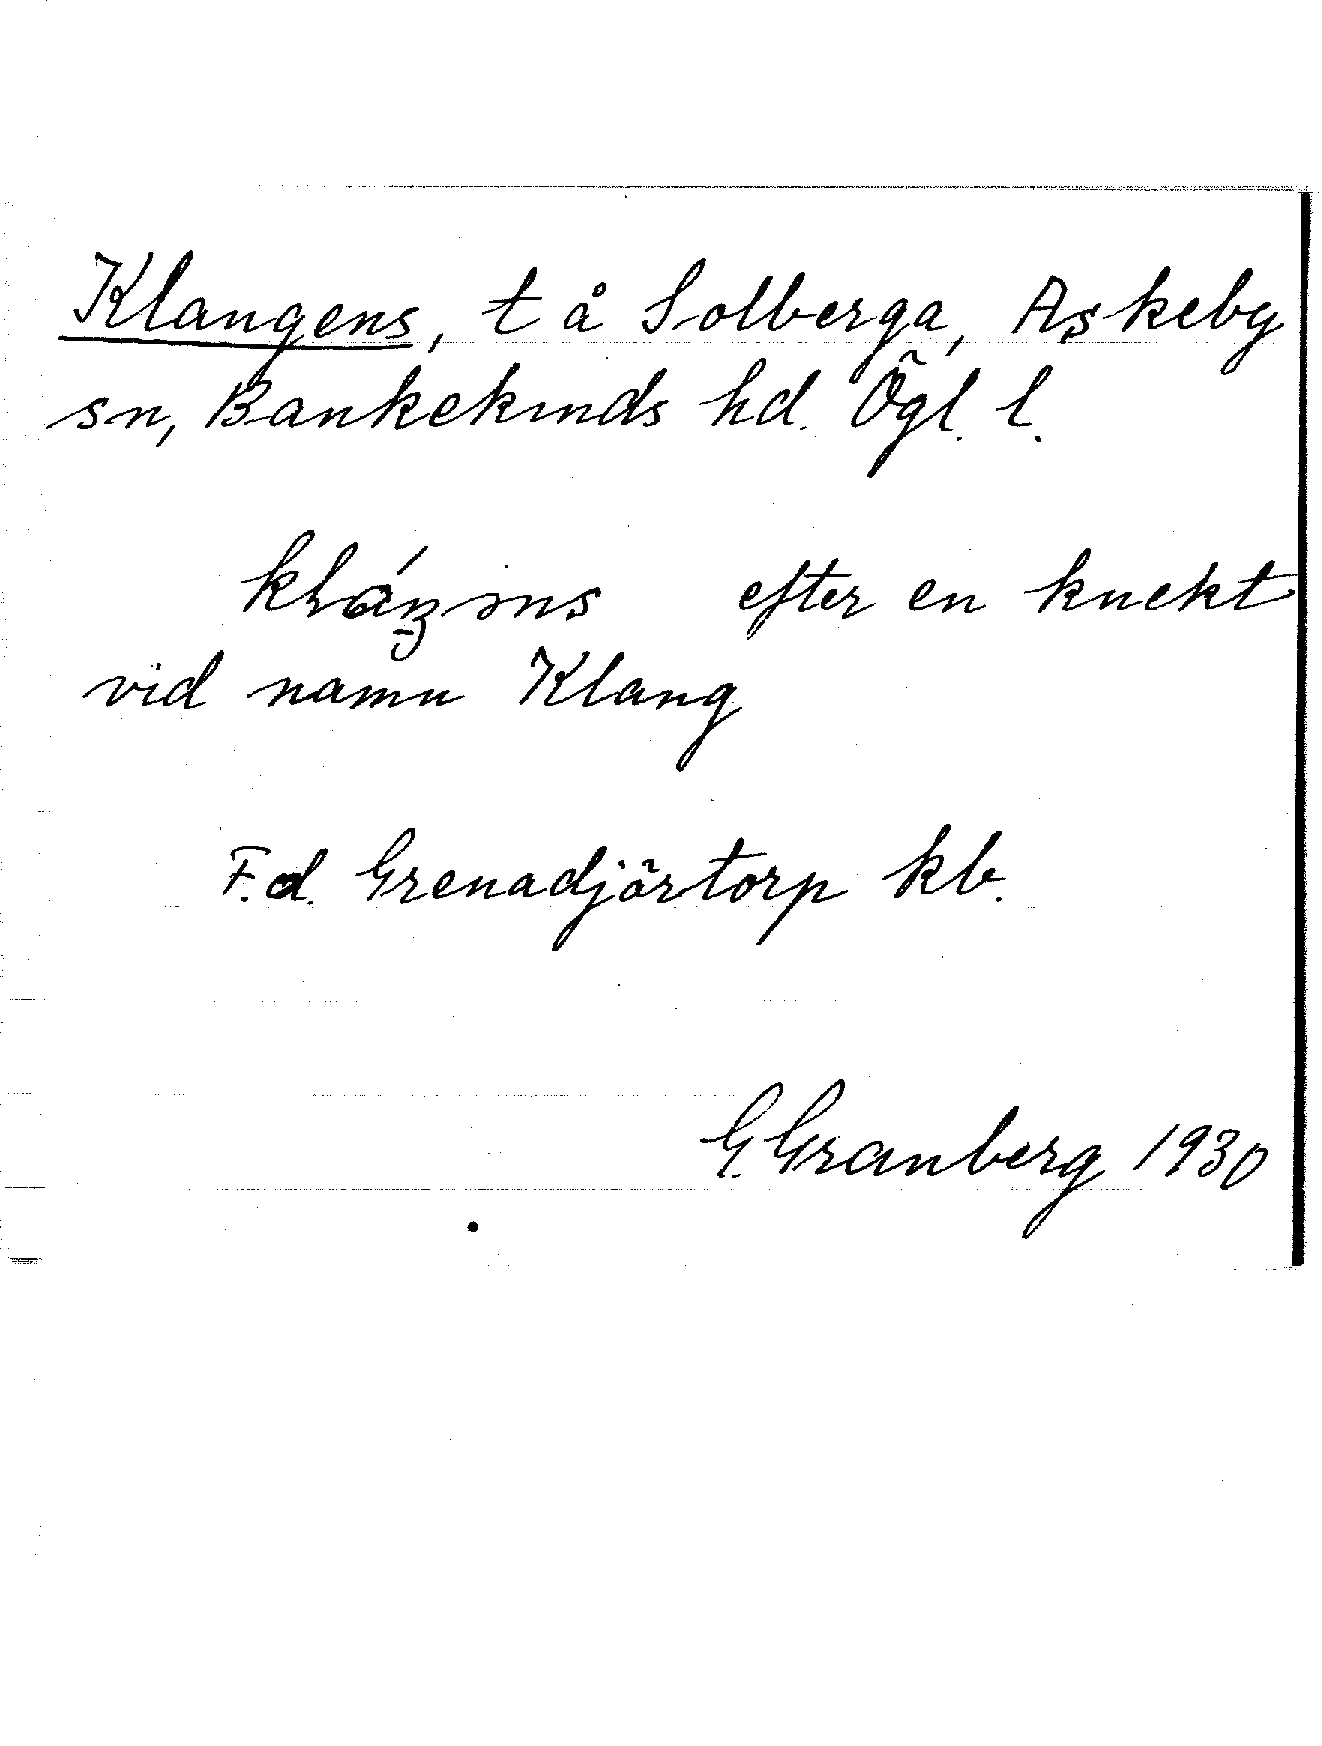 Klangens, t å Solberga, Askeby
sn, Bankekinds hd. Ögl. l.
efter en knekt
vid namn Klang
F.d. Grenadjärtorp kb.
G. Granberg 1930